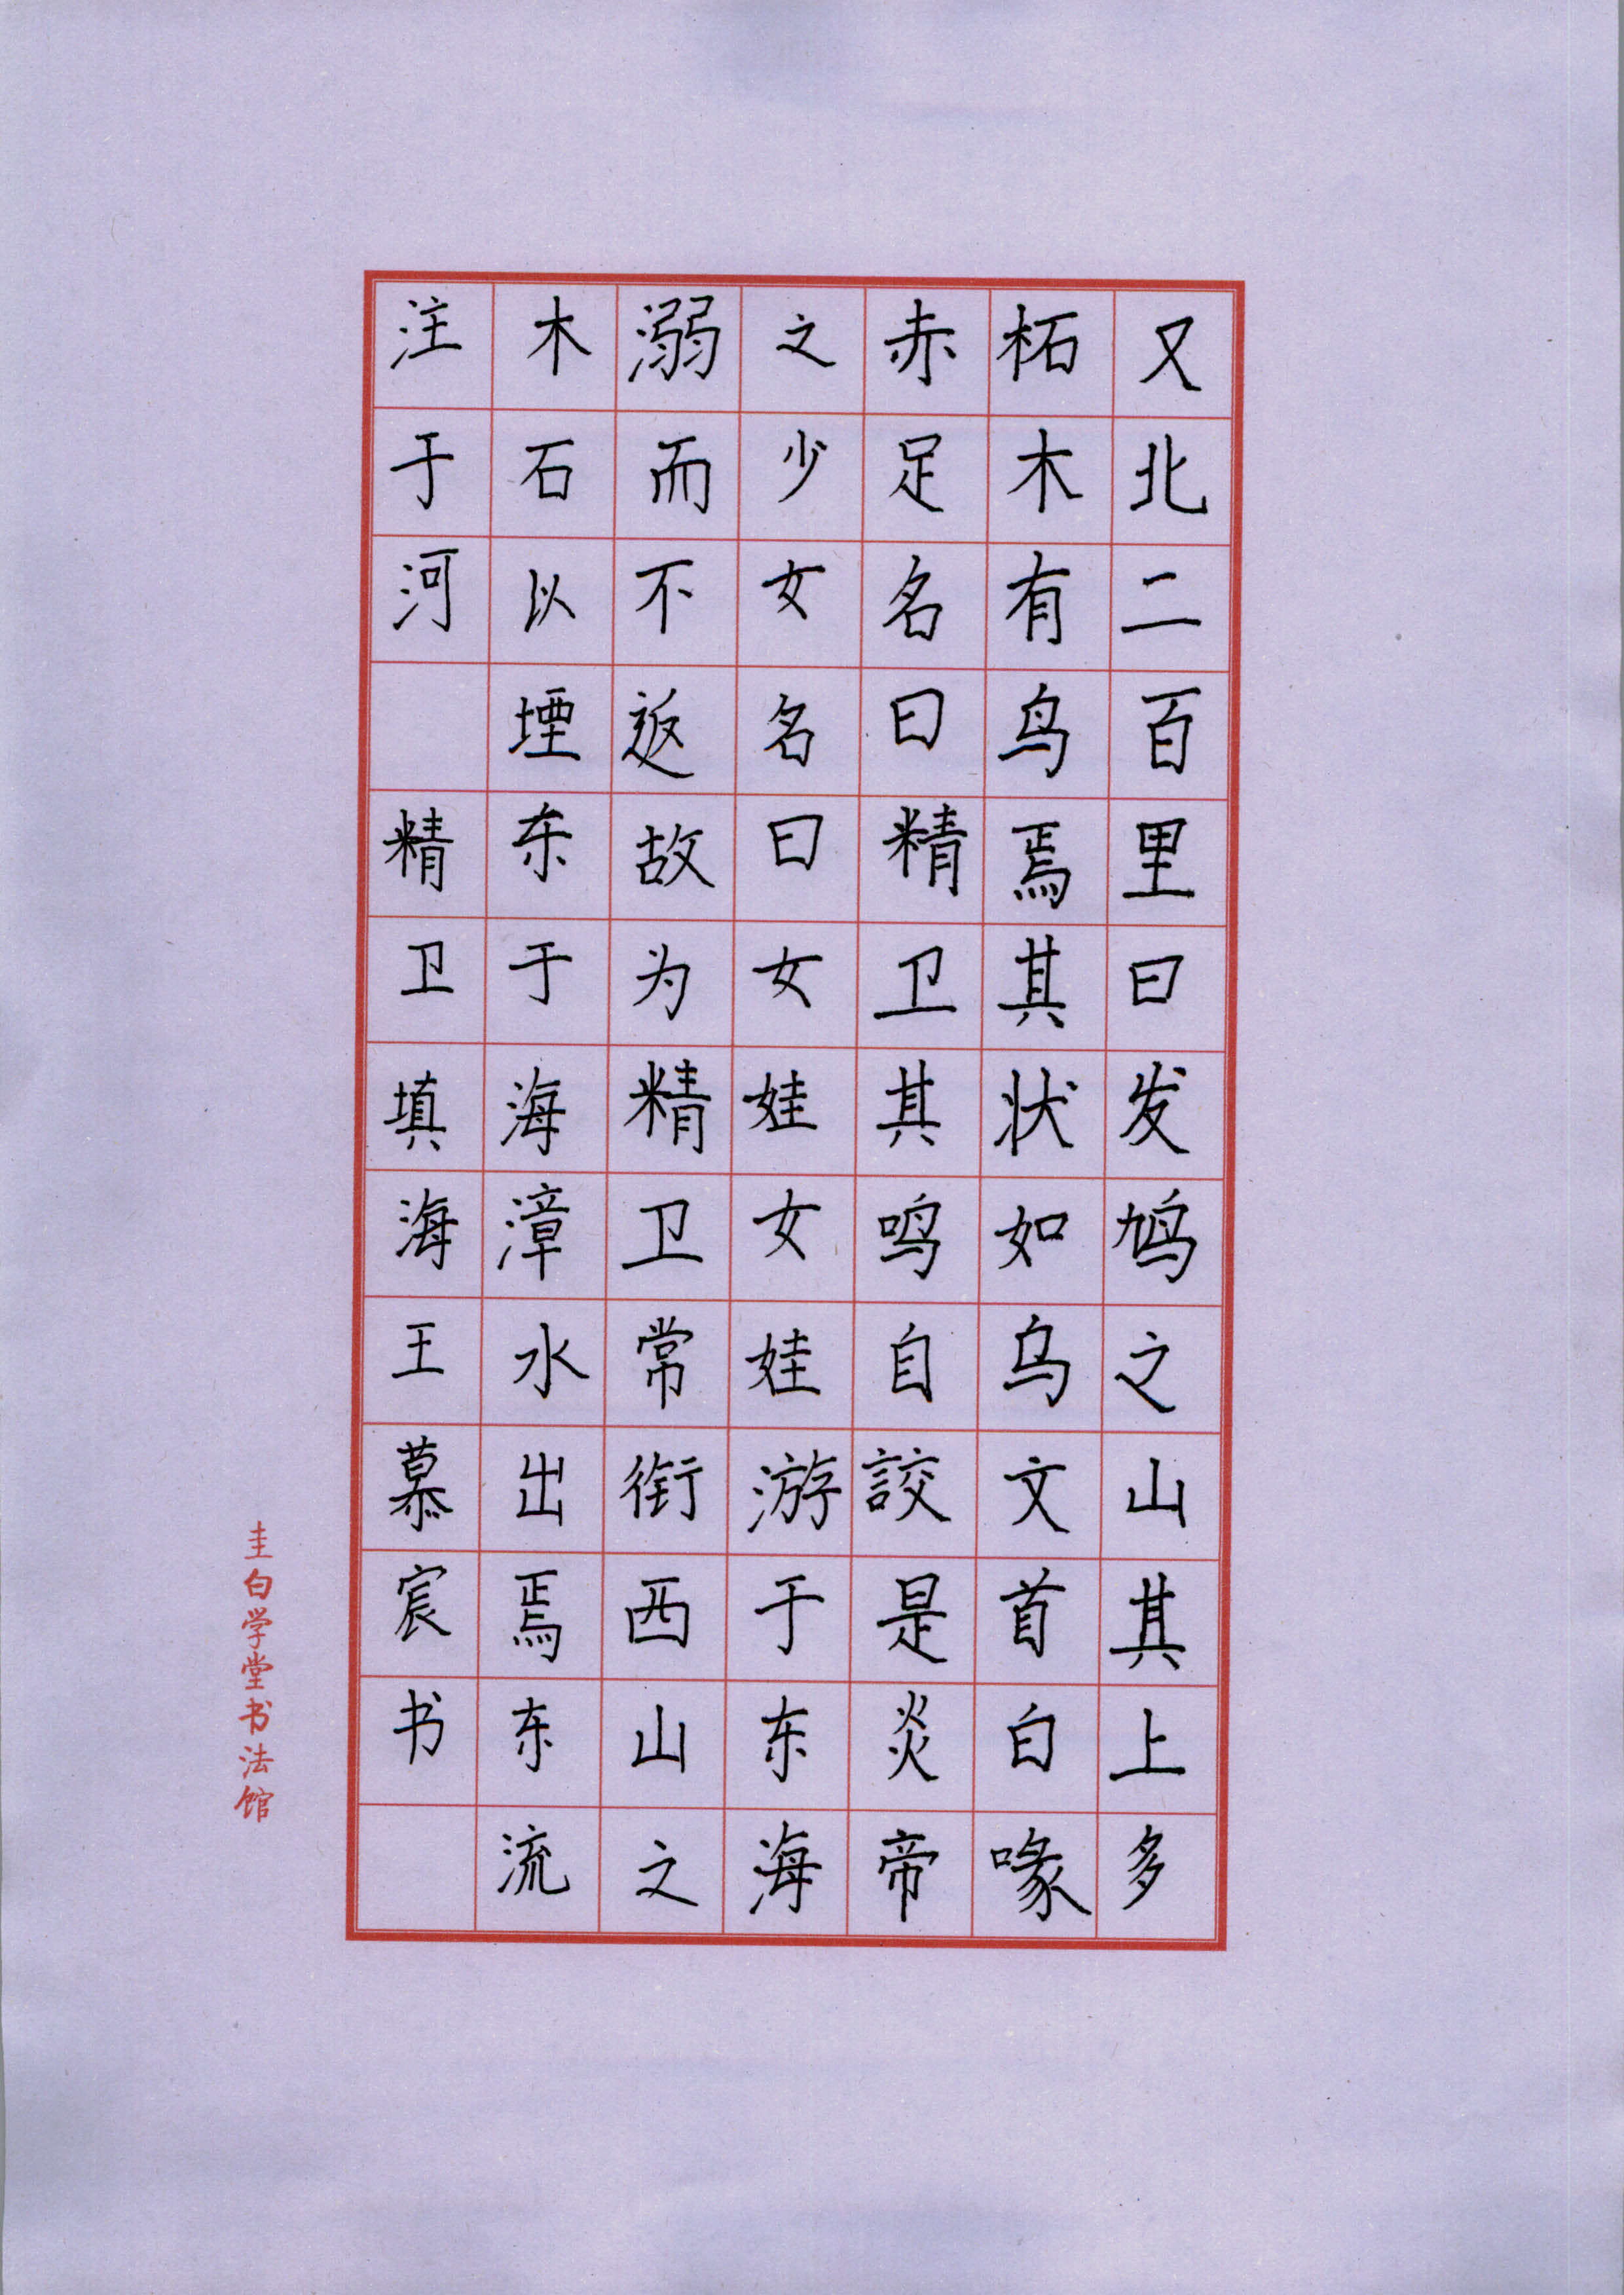 又北二百里曰发鸠之山其上多
柘木有鸟焉其状如乌文首白喙
赤足名曰精卫其鸣自詨是炎帝
之少女名曰女娃女娃游于东海
溺而不返故为精卫常衔西山之
木石以堙东于海漳水出焉东流
注于河 精卫填海王慕宸书
圭白学堂书法馆